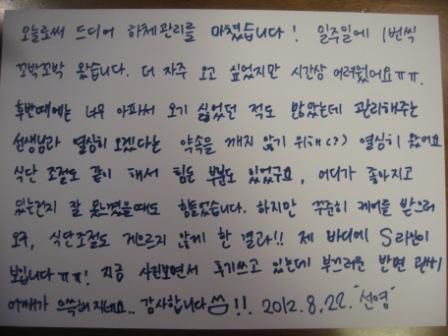 오늘로써 드디어 하체관리를 마쳤습니다! 일주일에 1번씩
꼬박꼬박 왔습니다. 더 자주 오고 싶었지만 시간상 어려웠어요 ㅠㅠ.
후반때에는 너무 아파서 오기 싫었던 적도 많았는데 관리해주는
선생님과 열심히 오겠다는 약속을 깨지 않기 위해(?) 열심히 왔어요
식단 조절도 같이 해서 힘든 부분도 있었구요, 어디가 좋아지고
있는건지 잘 못느꼈을때도 힘들었습니다. 하지만 꾸준히 케어를 받으러
오구, 식단조절도 게으르지 않게 한 결과!! 제 바디에 S라인이
보입니다 ㅠㅠ! 지금 사진보면서 후기쓰고 있는데 부끄러운 반면 괜히
어깨가 으쓱해지네요.. 감사합니다 !! 2012.8.22. "선영"